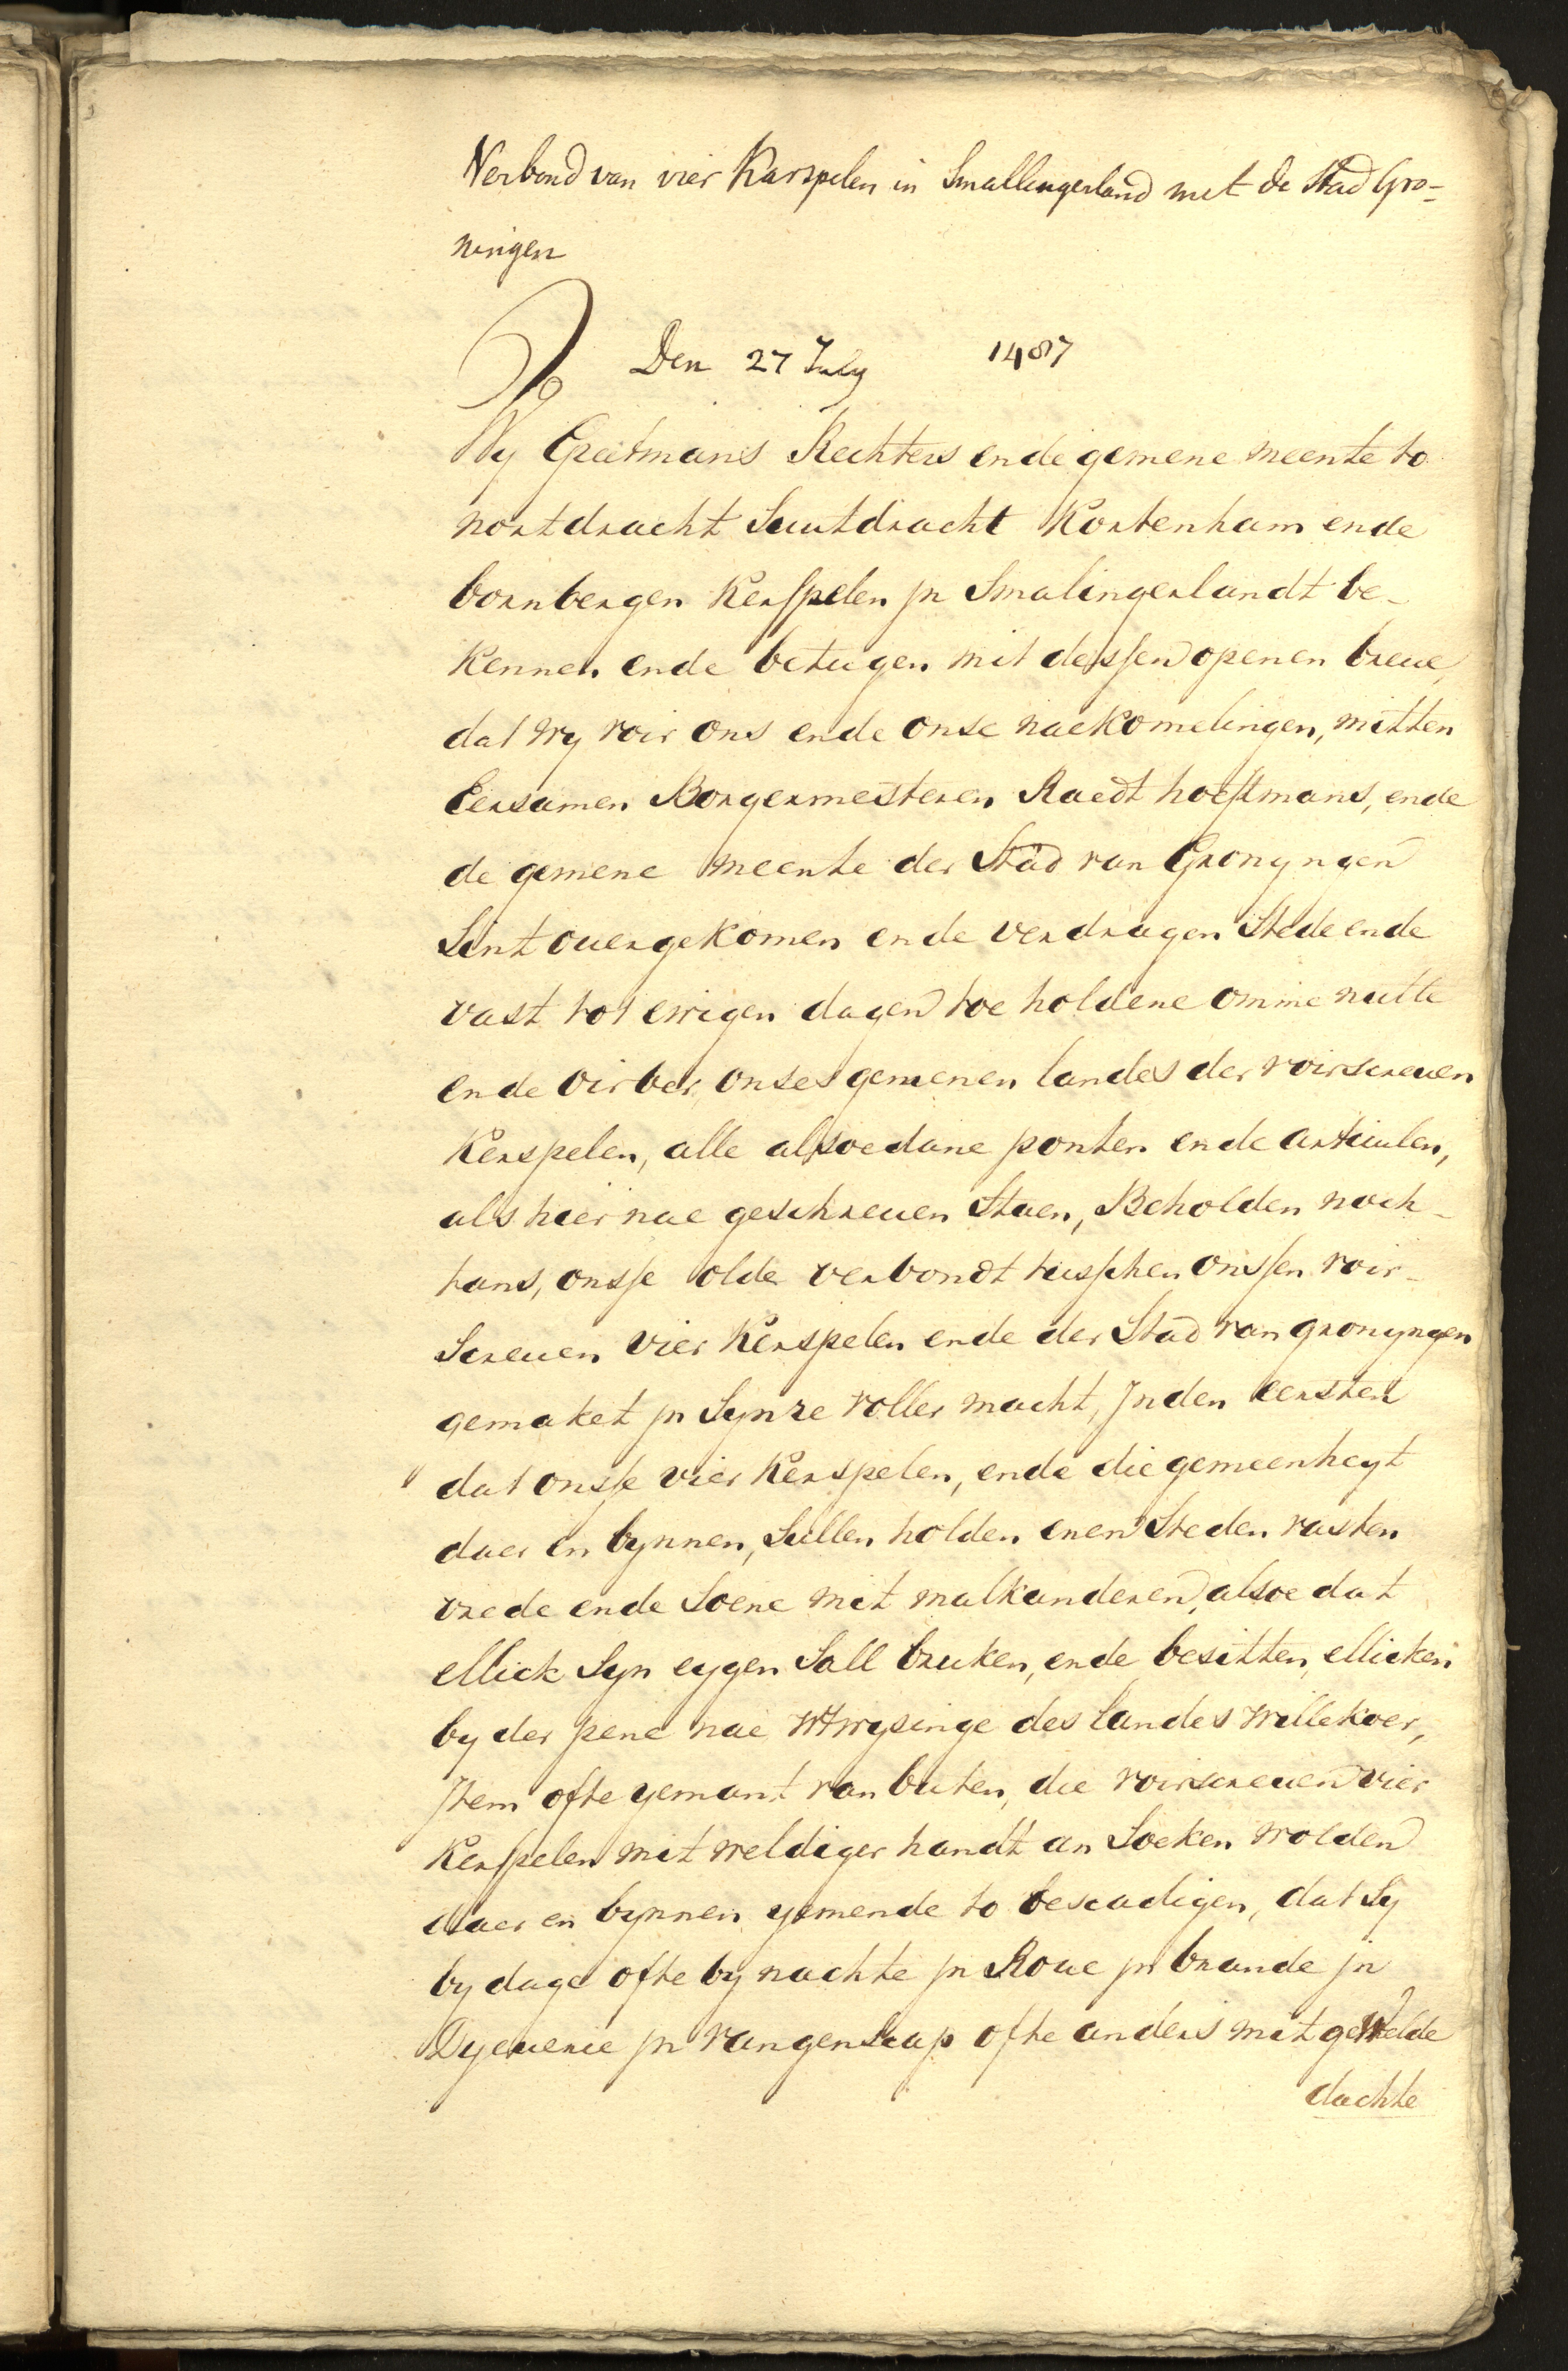 Verbond van vier Karspelen in Smallingerland met de Stad Gro-
ningen
Den 27 July 1487
Wy Greetmans Rechters ende gemene meente to
nortdracht Suutdracht Kortenham ende
bornbergen Kerspelen jn Smalingerlandt be-
kennen ende betugen mit dessen openen breue,
dat wy voir ons ende onse naekomelingen, mitten
Eersamen Borgermesteren Raedt hoeftmans, ende
de gemene meente der Stad van Gronyngen
Sint ouergekomen ende verdragen Stede ende
vast tot ewigen dagen toe holdene omme nutte
ende oirber, onses gemenen landes der voirscreuen
Kerspelen, alle alsoedane ponten ende articulen,
als hier nae geschreuen Staen, Beholden noch-
tans, onsse olde verbondt tusschen onssen voir-
Screuen vier Kerspelen ende der Stad van gronyngen
gemaket jn Synre voller macht, Jnden eersten
dat onsse vier Kerspelen, ende die gemeenheyt
daer en bynnen, Sullen holden enen Steden vasten
vrede ende Soene mit malkanderen, alsoe dat
ellick Syn eygen Sall bruken, ende besitten, ellicken
by der pene nae wtwysinge des landes willekoer,
Jtem ofte yemant van buten, die voirscreuen vier
Kerspelen mit weldiger handt an Soeken wolden
daer en bynnen yemende to bescadigen, dat Sy
by dage ofte by nachte jn Roue jn brande jn
Dyeuerie jn vangenscap ofte anders mit gewelde
dachte